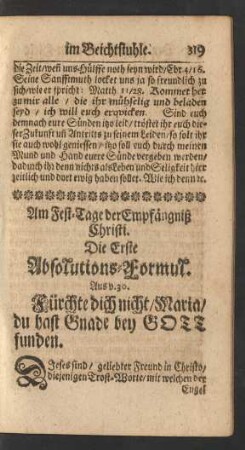 im Beichtstuhle. 319
die Zeit/ weñ uns Hülffe noth seyn wird/ Ebr 4/16.
Seine Sanfftmuth locket uns ja so freundlich zu
sich/ wie er spricht: Matth 11/28. Kommet her
zu mir alle / die ihr mühselig und beladen
seyd / ich will euch erqvicken. Sind euch
demnach eure Sünden itzo leid/ tröstet ihr euch die-
ser Zukunfft uñ Antritts zu seinem Leiden/ so solt ihr
sie auch wohl geniessen/ itzo soll euch durch meinen
Mund und Hand eurer Sünde vergeben werden/
dadurch ihr denn nichts als Leben und Seligkeit hier
zeitlich und dort ewig haben sollet. Wie ich denn ꝛc.
Am Fest-Tage der Empfängniß
Christi.
Die Erste
Absolutions-Formul.
Aus v. 30.
Fürchte dich nicht/ Maria/
du hast Gnade bey GOTT
funden.
Dieses sind/ geliebter Freund in Christo/
diejenigen Trost-Worte/ mit welchen der
Engel